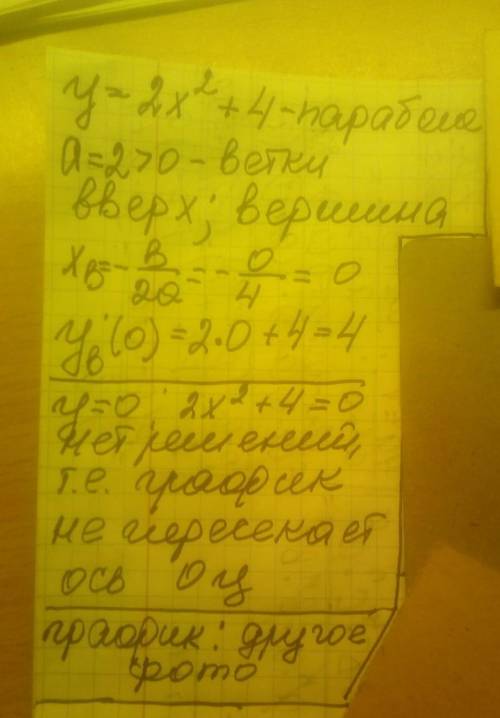 y = 2x² + 4 - парабола
a = 2 > 0 - ветки
вверх; вершина
xв = - в/2a = - 0/4 = 0
yв(0) = 2·0 + 4 = 4
y = 0 2x² + 4 = 0
нет решений,
т.е. график
не пересекает
ось Оy
график: другое
фото